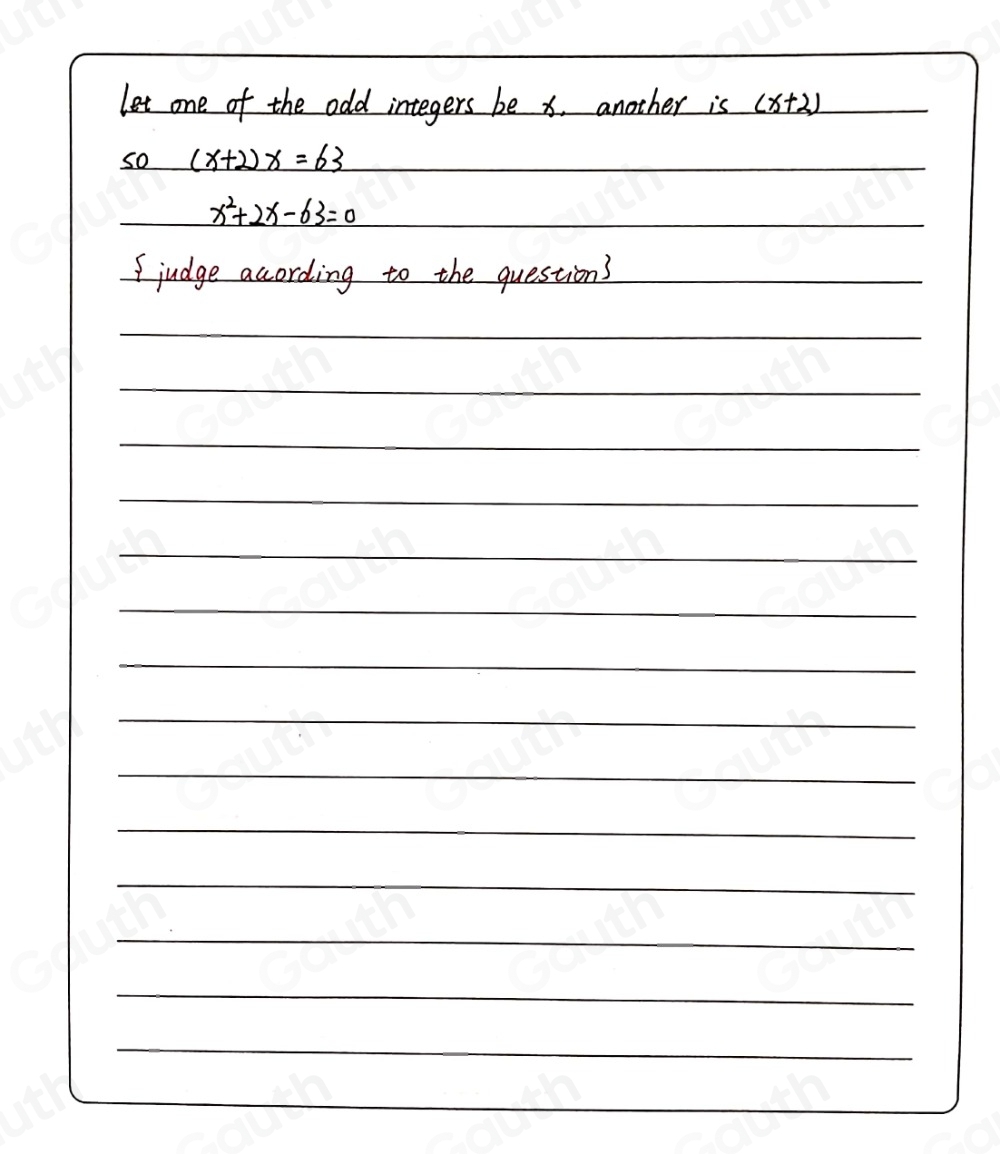 Let one of the odd integers be x. another is (x+2)
so (x+2)x = 63
x²+2x-63=0
{judge according to the question}